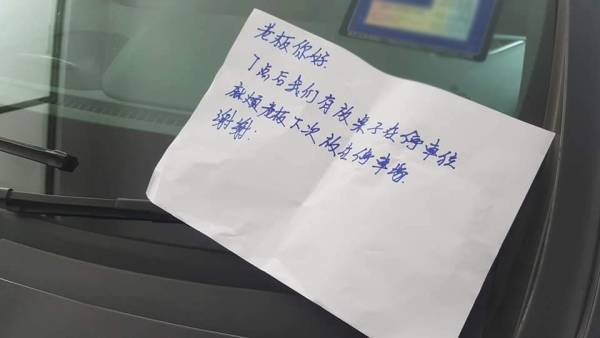 老板你好.
7点后我们有放桌子在停车位
麻烦老板下次放在停车场.
谢谢: